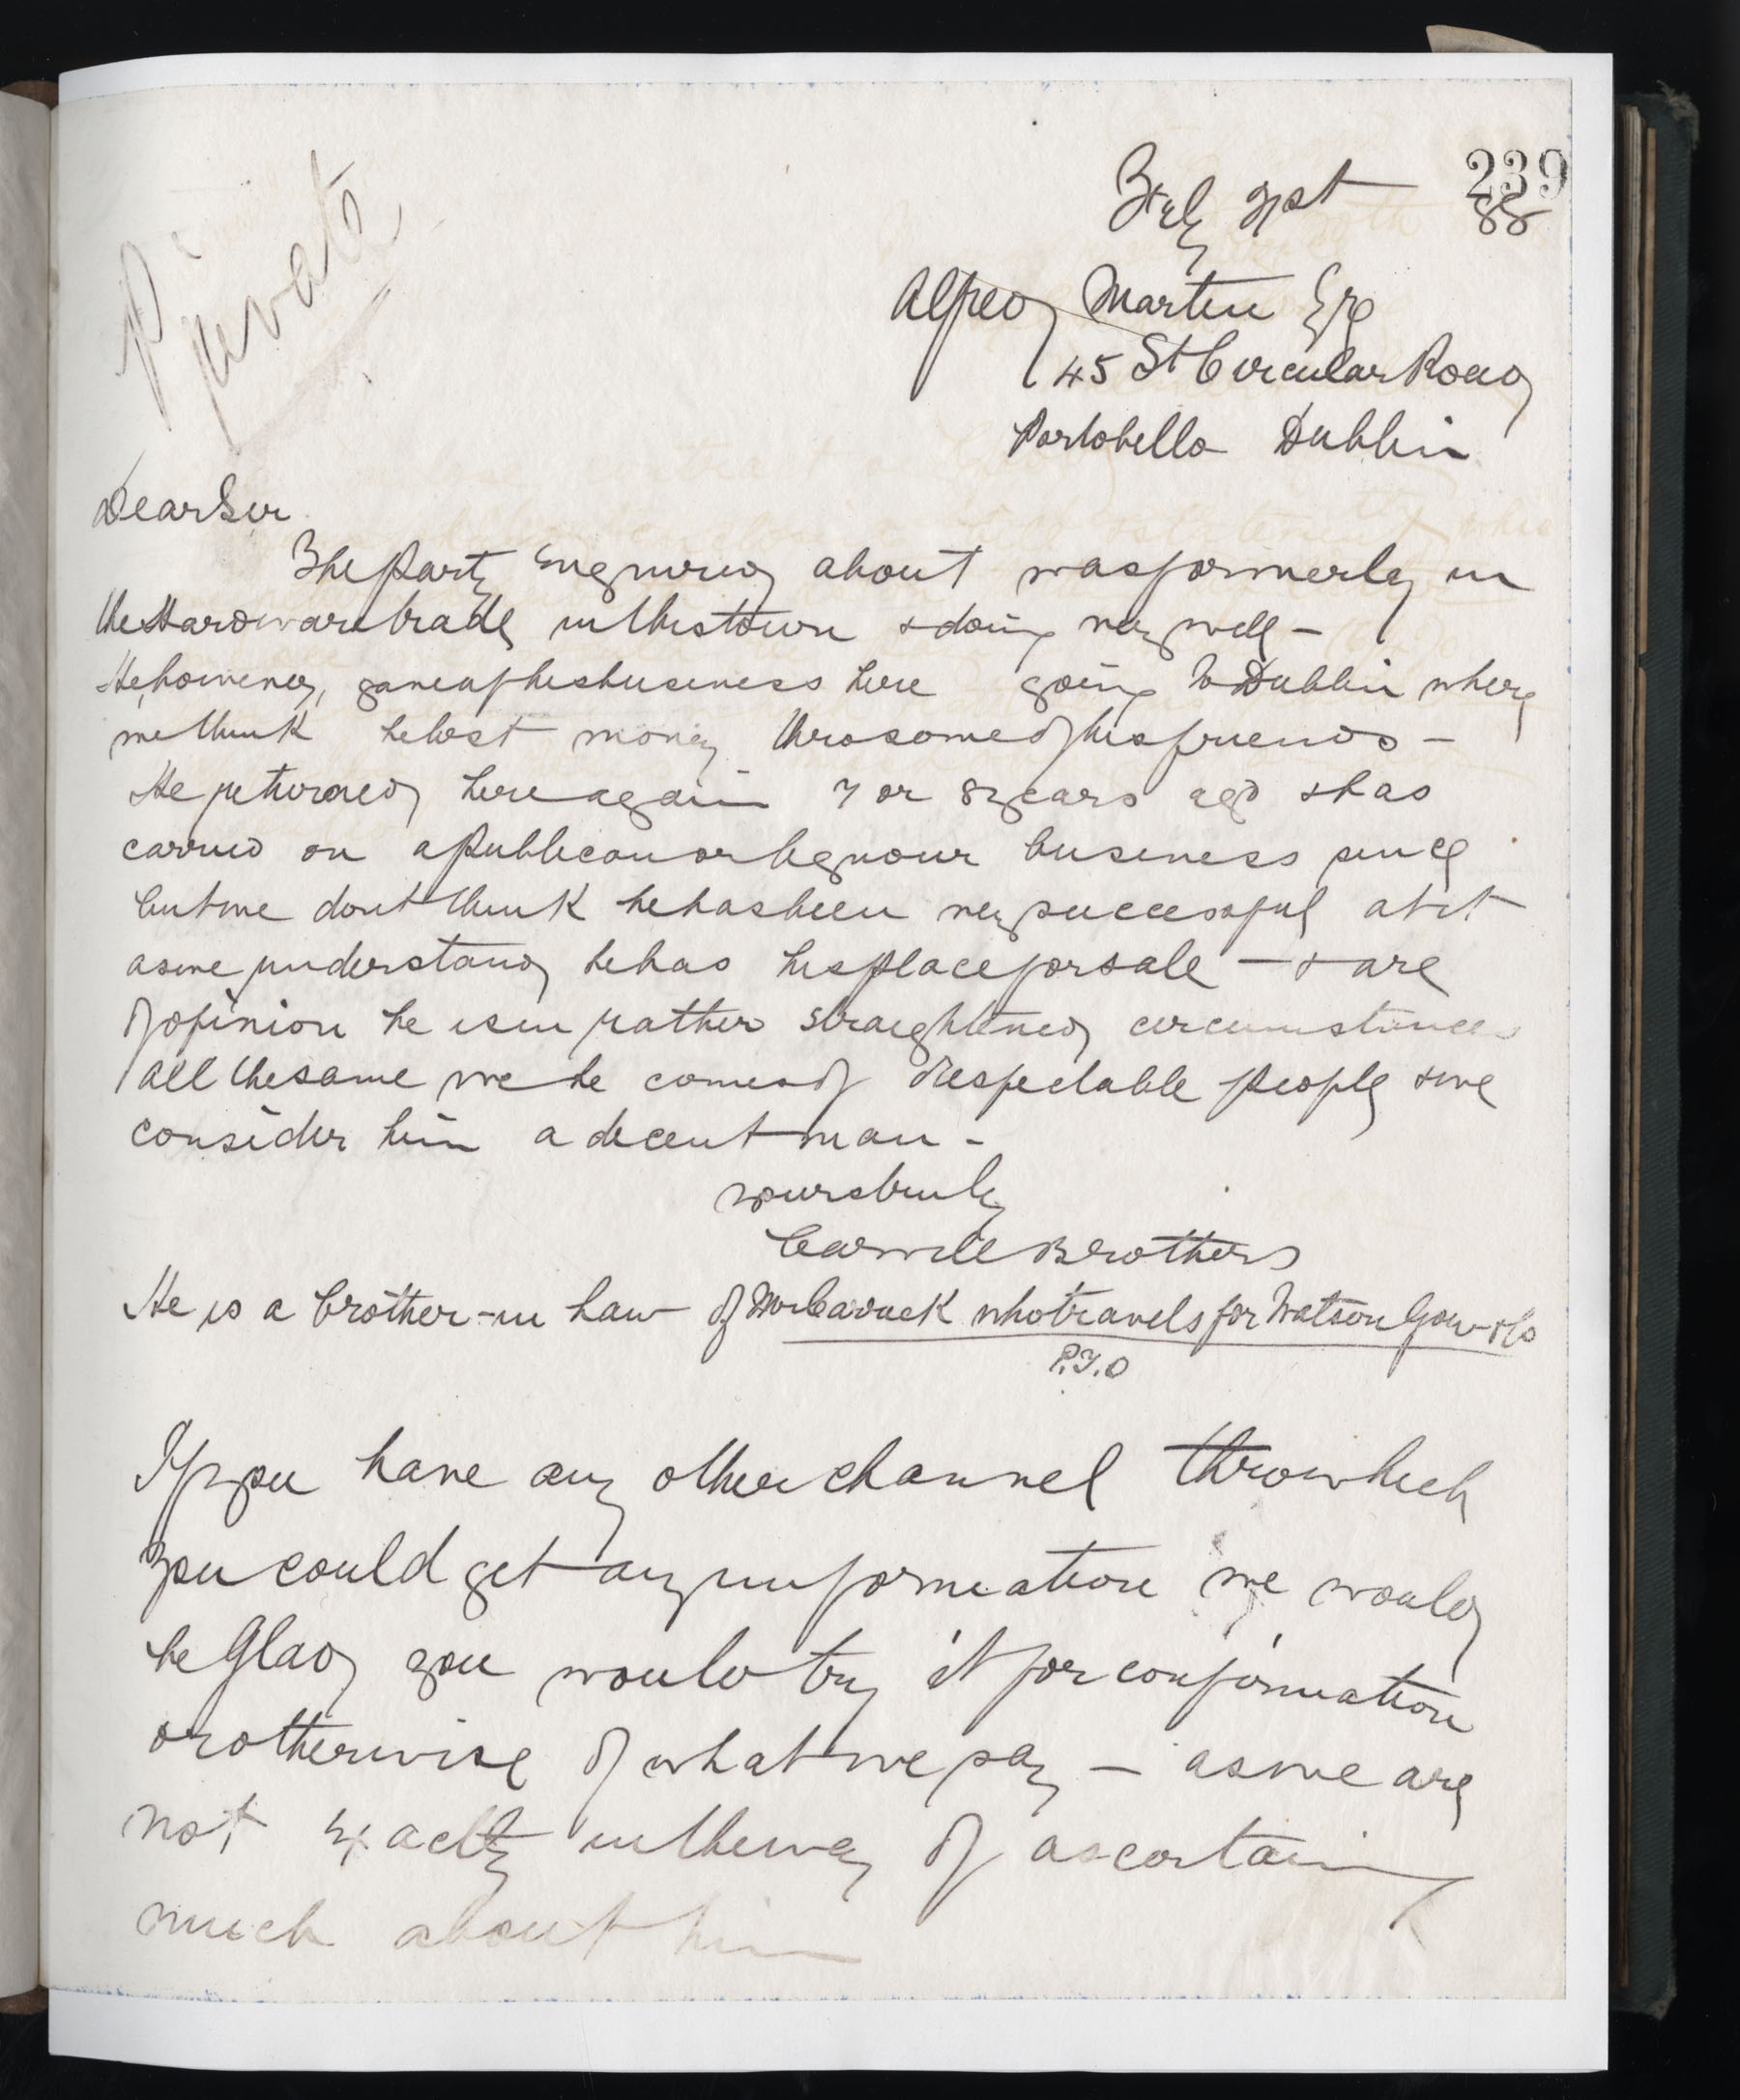 239
Private
Feby 21st 88
Alfred Martin Esq
45 St Circular Road
Portobello Dublin
Dear Sir
The Party Enquired about was formerly in
the Hardware trade in this town & doing very well –
He, however, gave up his business here going to Dublin where
we think he lost money thro some of his friends –
He returned here again 7 or 8 years ago & has
carried on a Publican or liquour business since
but we dont think he has been very successful at it
as we understand he has his place for sale – & are
of opinion he is in rather straightened circumstances
All the same we he comes of respectable people & we
consider him a decent man –
Yours truly
Carvill Brothers
He is a brother-in Law of Mr who travels for Watson Gow & Co
P.T.O
If you have any other channel thro which
you could get any information we would
be Glad you would try it for confirmation
or otherwise of what we say – as we are
not Exactly in the way of ascertaining
much about him